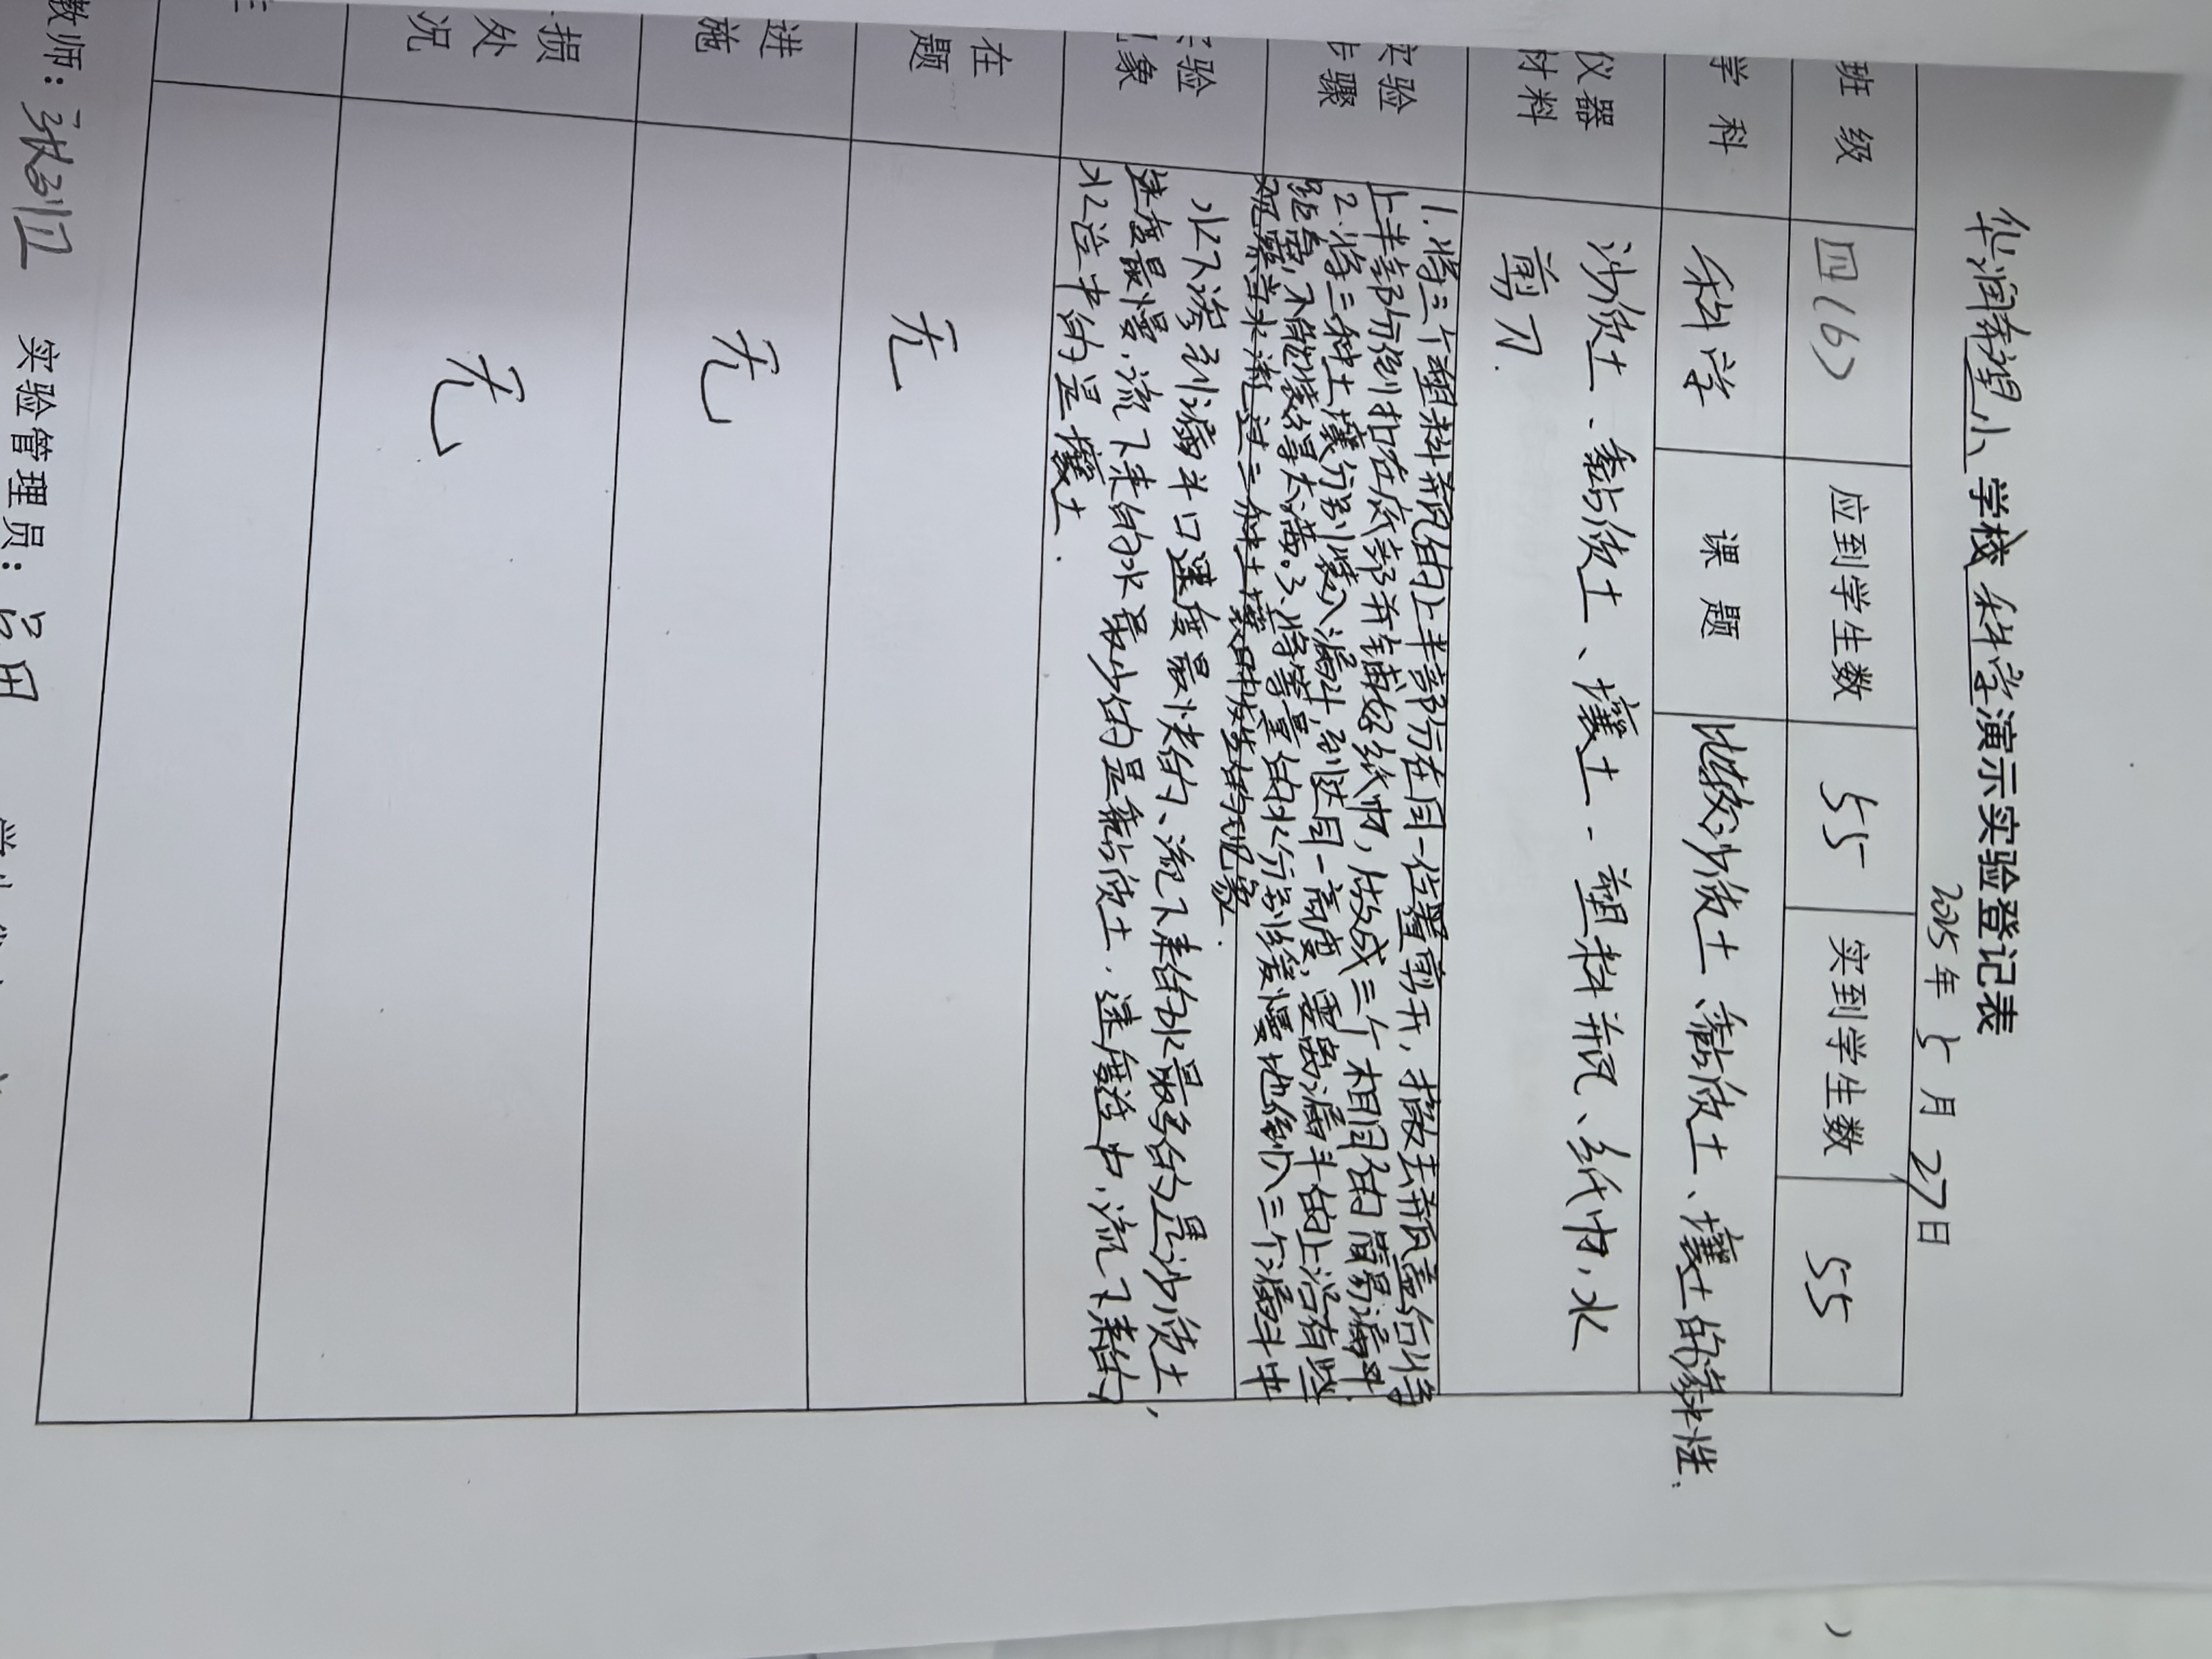 华润希望小学校科学演示实验登记表
2025年5月27日
班级 四(6) 应到学生数 55 实到学生数 55
学科 科学 课题 比较沙质土、黏质土、壤土的渗水性.
仪器 沙质土、黏质土、壤土、塑料瓶、纸巾、水
材料 剪刀.
实验
步骤
1.将三个塑料瓶的上半部分在同一位置剪开,撤去瓶盖后将
上半部分倒扣在底部并铺好纸巾,做成三个相同的简易漏斗.
2.将三种土壤分别装入漏斗,到达同一高度,要离漏斗的上沿有些
距离,不能装得太满。3.将等量的水分别缓慢地倒入三个漏斗中
观察当水浇过三种土壤时发生的现象.
实验
现象
水下渗到漏斗口速度最快的、流下来的水最多的是沙质土,
速度最慢,流下来的水最少的是黏质土,速度适中,流下来的
水适中的是壤土.
在
题
无
进
施
无
损
处
况
无
教师:张 实验管理员: